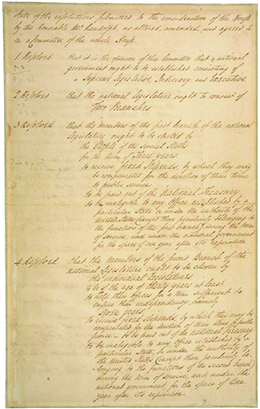 State of the resolutions submitted to the consideration of the House
by the honorable Mr. Randolph, as altered, amended, and agreed to
in a Committee of the whole House.
1 Resolved that it is the opinion of this Committee that a national
government ought to be established consisting of
a Supreme Legislative, Judiciary, and Executive.
2 Resolved that the national Legislature ought to consist of
Two Branches.
3 Resolved that the members of the first branch of the national
Legislature ought to be elected by
the People of the several States
for the term of Three years.
to receive fixed stipends, by which they may
be compensated for the devotion of their time
to public service
to be paid out of the National Treasury.
to be ineligible to any Office established by a
particular State or under the authority of the
United States (except those peculiarly belonging to
the functions of the first branch) during the term
of service, and under the national government
for the space of one year after its expiration.
4 Resolved that the members of the second Branch of the
national Legislature ought to be chosen by
the individual Legislatures.
to be of the age of thirty years at least.
to hold their offices for a term sufficient to
ensure their independency, namely
seven years.
to receive fixed stipends, by which they may be
compensated for the devotion of their time to public
service to be paid out of the National Treasury
to be ineligible to any Office established by a
particular State, or under the authority of
the United States (except those peculiarly be-
longing to the functions of the second branch)
during the term of service, and under the
national government, for the space of one
year after its expiration.